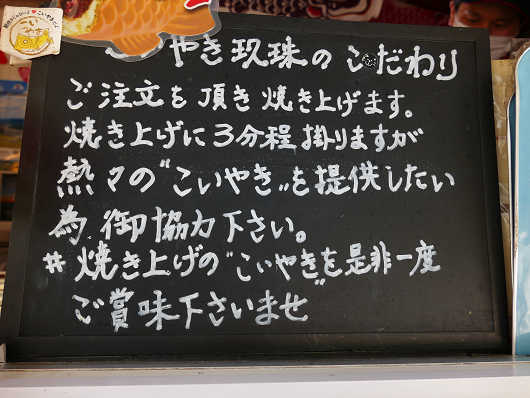 いやき玖珠のこだわり
ご注文を頂き焼き上げます。
焼き上げに3分程掛りますが
熱々の"こいやき"を提供したい
為、御協力下さい。
#焼き上げの"こいやき"を是非一度
ご賞味下さいませ